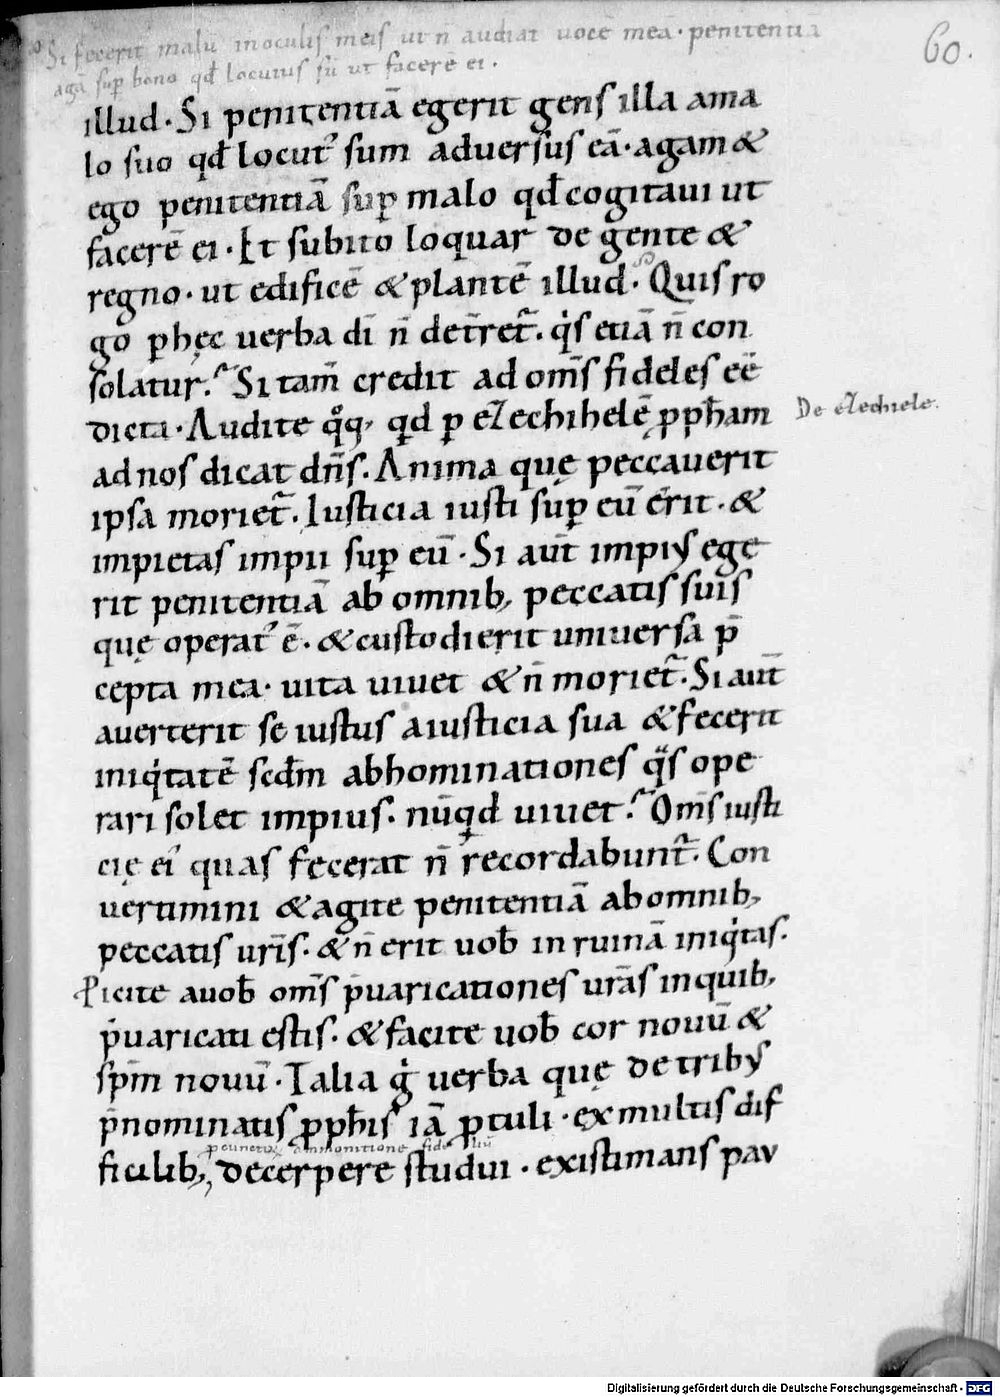 Si fecerit malū inoculis meis ut n̄ audiat uocē meā · penitentiā
agā sup̲ bono qđ locutus sū ut facerē ei .
60.
illud · Si penitentiā egerit gens illa ama
lo suo qđ locut᷒ sum aduersus eā · agam &
ego penitentiā sup̲ malo qđ cogitaui ut
facerē ei · Et subito loquar de gente &
regno · ut edificē & plantē illud · Quis ro
go p̲ hęc uerba dī n̄ detr̄ret᷒ . q̇s etiā n̄ con
solatur . Si tam̄ credit ad om̄s fideles eē
dicta · Audite q̊q, qđ p̲ eZechihelē p̲pħam
De eZechiele .
ad nos dicat dn̄s . Anima quę peccauerit
ipsa moriet᷒ . Iusticia iusti sup̲ eū erit . &
impietas impii sup̲ eū · Si aut̄ impiꝰ ege
rit penitentiā ab omnib, peccatis suis
quę operat᷒ ē · & custodierit uniuersa p̄
cepta mea · uita uiuet & n̄ moriet᷒ . Si aut̄
auerterit se iustus aiusticia sua & fecerit
iniq̇tatē scđm abhominationes q̈s ope
rari solet impius . nūqđ uiuet . Om̄s iusti
cię ei᷒ quas fecerat n̄ recordabunt᷒ . Con
uertimini & agite penitentiā ab omnib,
peccatis uris̄ . & n̄ erit uob̄ in ruinā iniq̇tas .
Picite auob̄ om̄s p̄uaricationes urās in quib,
p̄uaricati estis . & facite uob̄ cor nouū &
spm̄ nouū · Talia ġ uerba quę de tribꝰ
p̄nominatis p̲pħis iā p̲tuli · ex multis dif
ficilib, decerpere studui . existimans pau
Digitalisierung gefördert durch die Deutsche Forschungsgemeinschaft - DFG